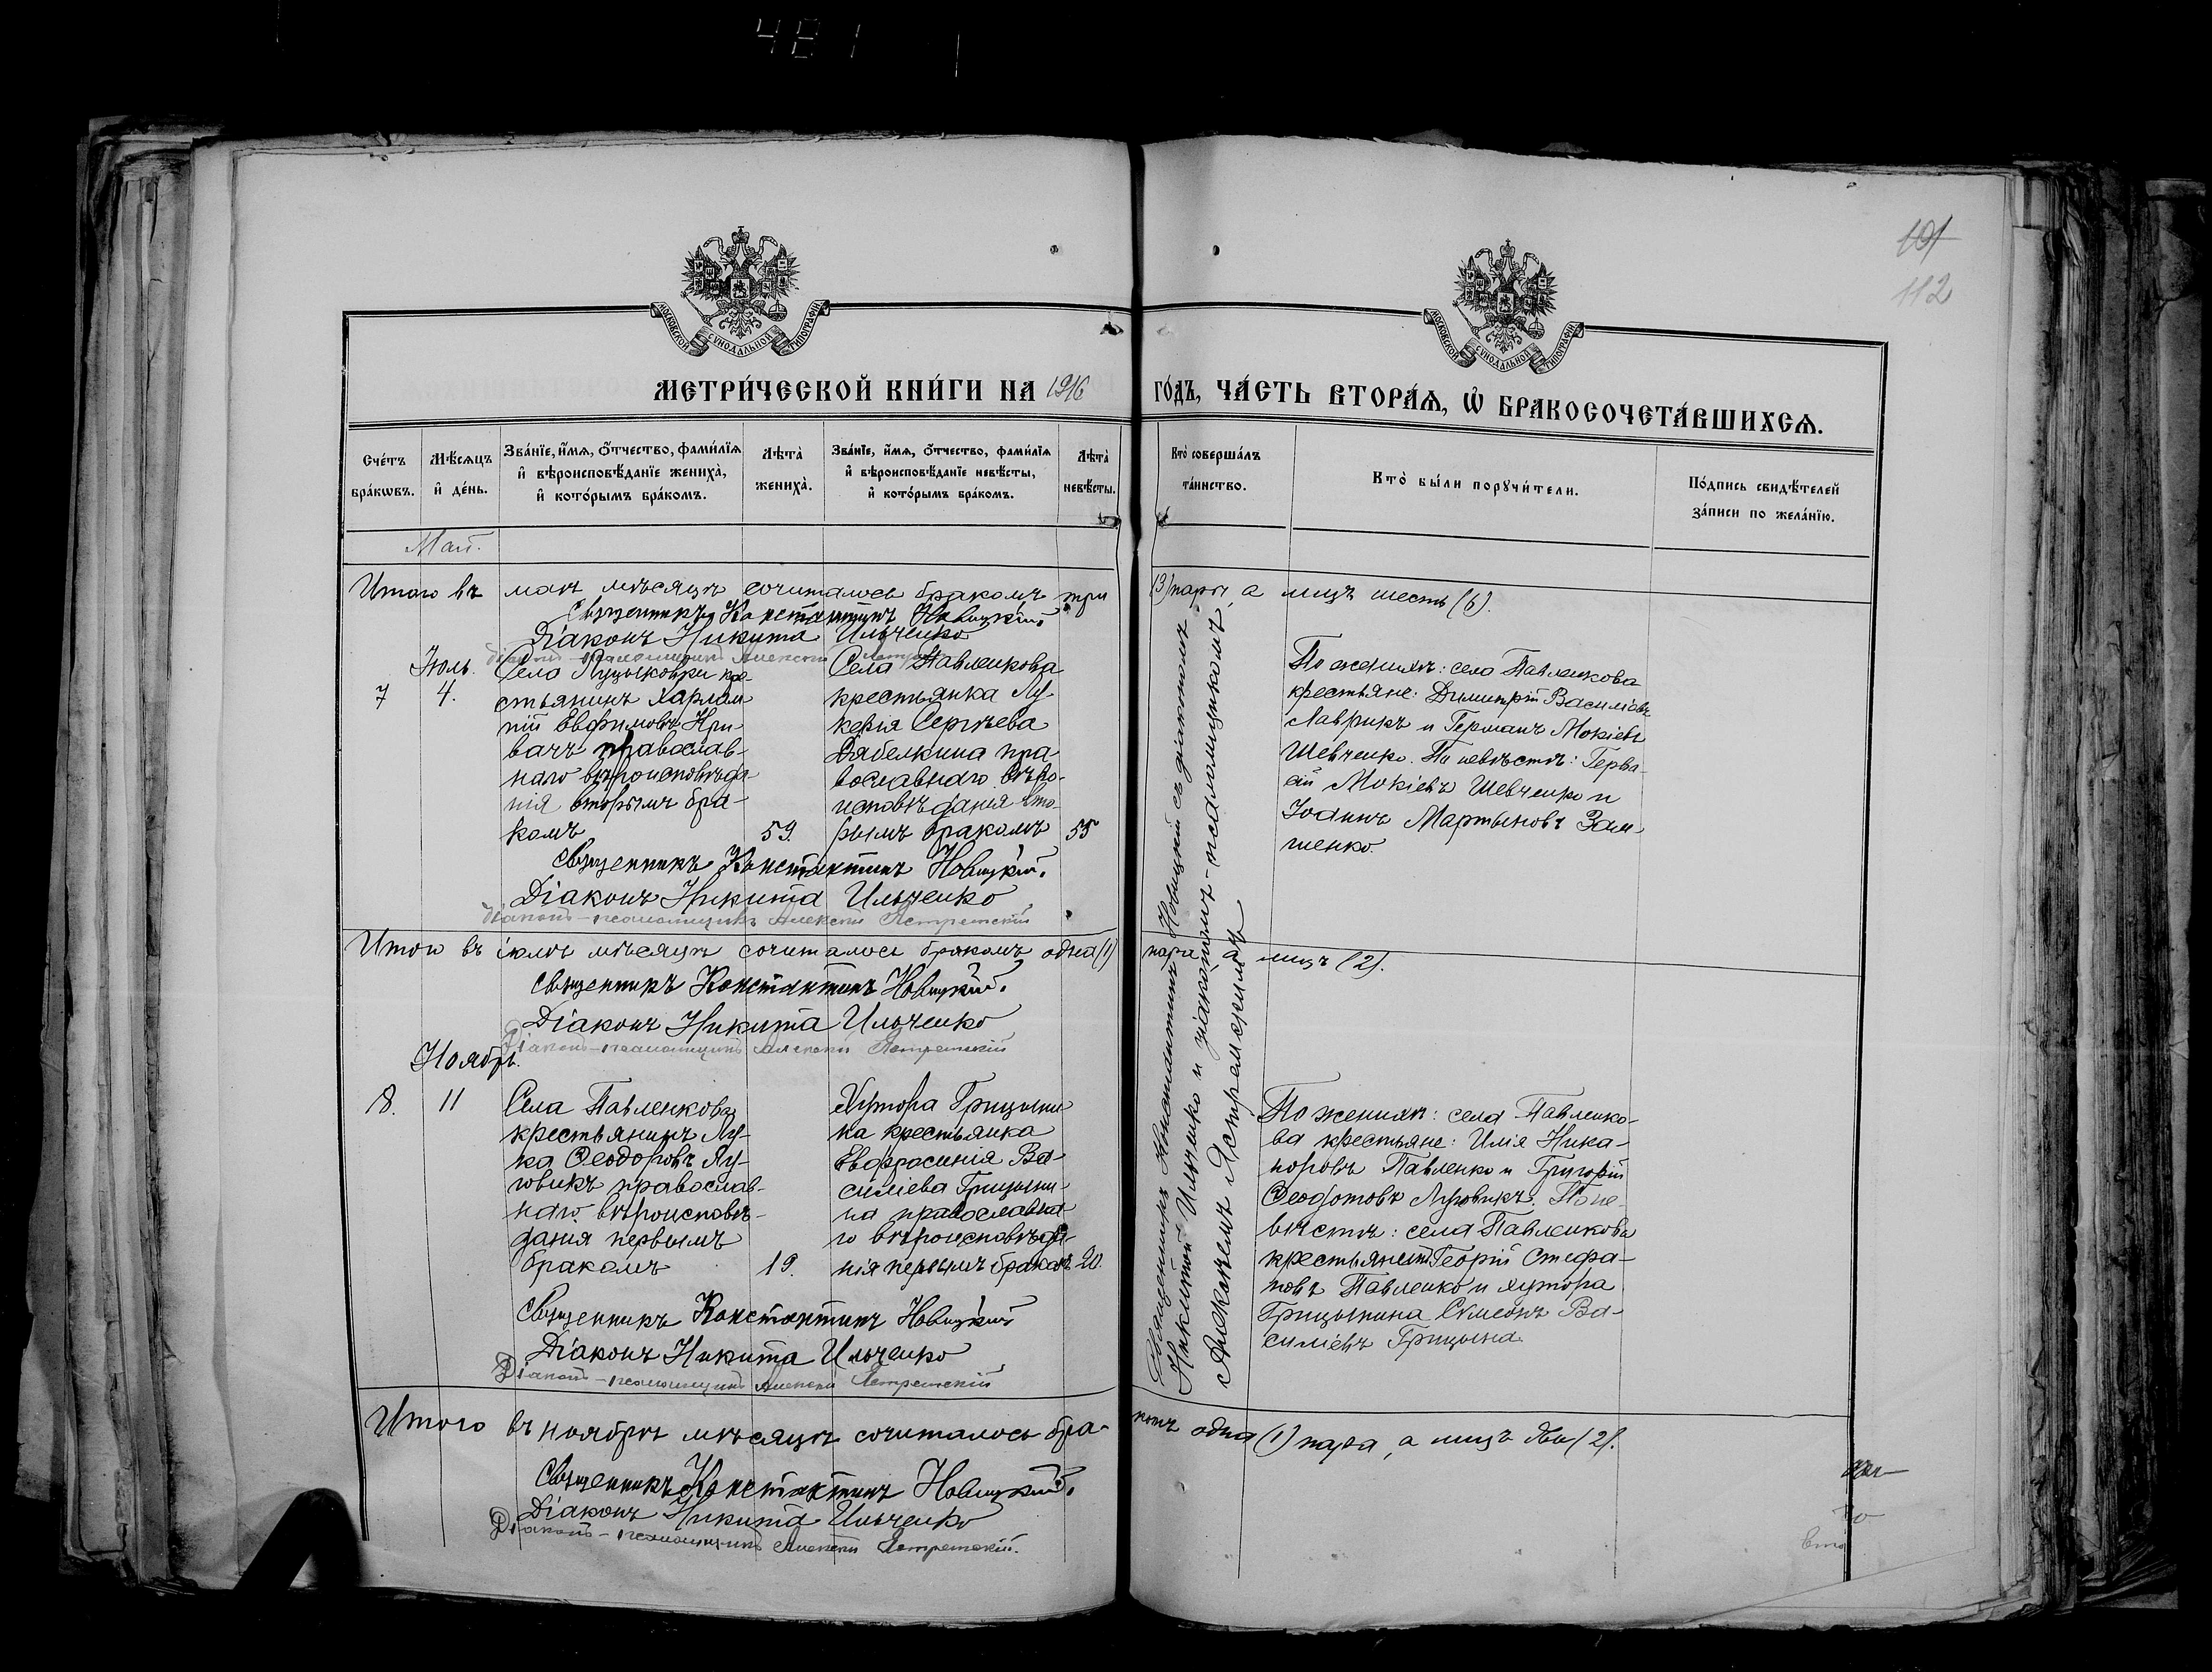 481
101
112
МОСКОВСКОЙ СѴНОДАЛЬНОЙ ТИПОГРАФІИ
МОСКОВСКОЙ СѴНОДАЛЬНОЙ ТИПОГРАФІИ
МЕТРИ́ЧЕСКОЙ КНИ́ГИ НА 1916 ГО́ДЪ, ЧА́СТЬ ВТОРА́Ѧ, Ѡ БРАКОСОЧЕТА́ВШИХСѦ.
Сче́тъ бра́кѡвъ.
Мѣ́сѧцъ и де́нь.
Зва́нїе, и́мѧ, о́тчество, фами́лїѧ
и вѣроисповѣ́данїе жениха̀,
и кото́рымъ бра́комъ.
Лѣта̀ жениха̀.
Зва́нїе, и́мѧ, о́тчество, фами́лїѧ
и вѣроисповѣ́данїе невѣ́сты,
и кото́рымъ бра́комъ.
Лѣта̀ невѣ́сты.
Кто̀ соверша́лъ та́инство.
Кто̀ бы́ли порꙋчи́тели.
По́дпись свидѣ́телей за́писи по жела́нїю.
Май.
Итого въ маѣ мѣсяцѣ сочиталось бракомъ три (3) пары, а лицъ шесть (6).
Священникъ Константинъ Новицкій.
Діаконъ Никита Ильченко
Діаконъ-псаломщикъ Алексѣй
Іюль.
7
4.
Села
крестьянинъ Харлам-
пій Евфимовъ Кри-
вачъ православ-
наго вѣроисповѣда
нія вторымъ бра-
комъ
59.
Села Павленкова
крестьянка Лу
керія Сергѣева
пра
вославнаго вѣро-
исповѣданія вто-
рымъ бракомъ
55
По женихѣ: села Павленкова
крестьяне: Димитрій Василіевъ
Лаврикъ и Германъ Мокіевъ
Шевченко. По невѣстѣ: Герва-
сій Мокіевъ Шевченко и
Іоаннъ Мартыновъ Зам-
шенко.
Священникъ Константинъ Новицкій.
Діаконъ Никита Ильченко
Діаконъ-псаломщикъ Алексѣй
Итого въ іюлѣ мѣсяцѣ сочиталось бракомъ одна (1) пара, а лицъ (2).
Священникъ Константинъ Новицкій.
Діаконъ Никита Ильченко
Діаконъ-псаломщикъ Алексѣй
Ноябрь.
8.
11
Села Павленкова
крестьянинъ Лу-
ка Ѳеодоровъ Лу-
говикъ православ-
наго вѣроисповѣ-
данія первымъ
бракомъ
19.
Хутора Грицыни
на крестьянка
Евфросинія Ва-
силіева Грицыни-
на православна
го вѣроисповѣда-
нія первымъ бракомъ
20.
По женихѣ: села Павленко-
ва крестьяне: Илія Ника-
норовъ Павленко и Григорій
Ѳеодотовъ Луговикъ. По не-
вѣстѣ: села Павленкова
крестьянинъ Георгій Стефа-
новъ Павленко и хутора
Грицынина Симеонъ Ва-
силіевъ Грицына
Священникъ Константинъ Новицкій
Діаконъ Никита Ильченко
Діаконъ-псаломщикъ Алексѣй
Священникъ Константинъ Новицкій съ діакономъ
Никитой Ильченко и діакономъ-псаломщикомъ
Алексѣемъ
Итого въ ноябрѣ мѣсяцѣ сочиталось бра-комъ одна (1) пара, а лицъ два (2).
Священникъ Константинъ Новицкій.
Діаконъ Никита Ильченко
Діаконъ-псаломщикъ Алексѣй